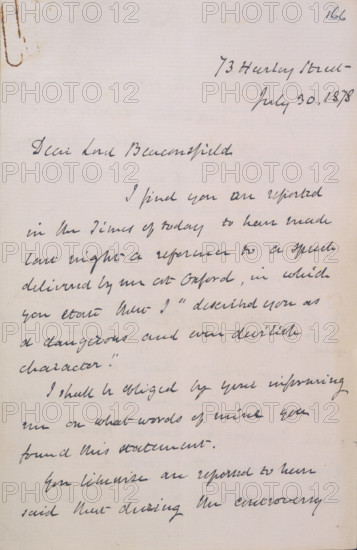 166
73 Harley Street
July 30. 1878
Dear Lord Beaconsfield
I find you are reported
in the Times of today to have made
last night a reference to a speech
delivered by me at Oxford, in which
you state that I "described you as
a dangerous and even devilish
character."
I shall be obliged by your informing
me on what words of mine you
found this statement.
You likewise are reported to have
said that during the controversy
PHOTO 12